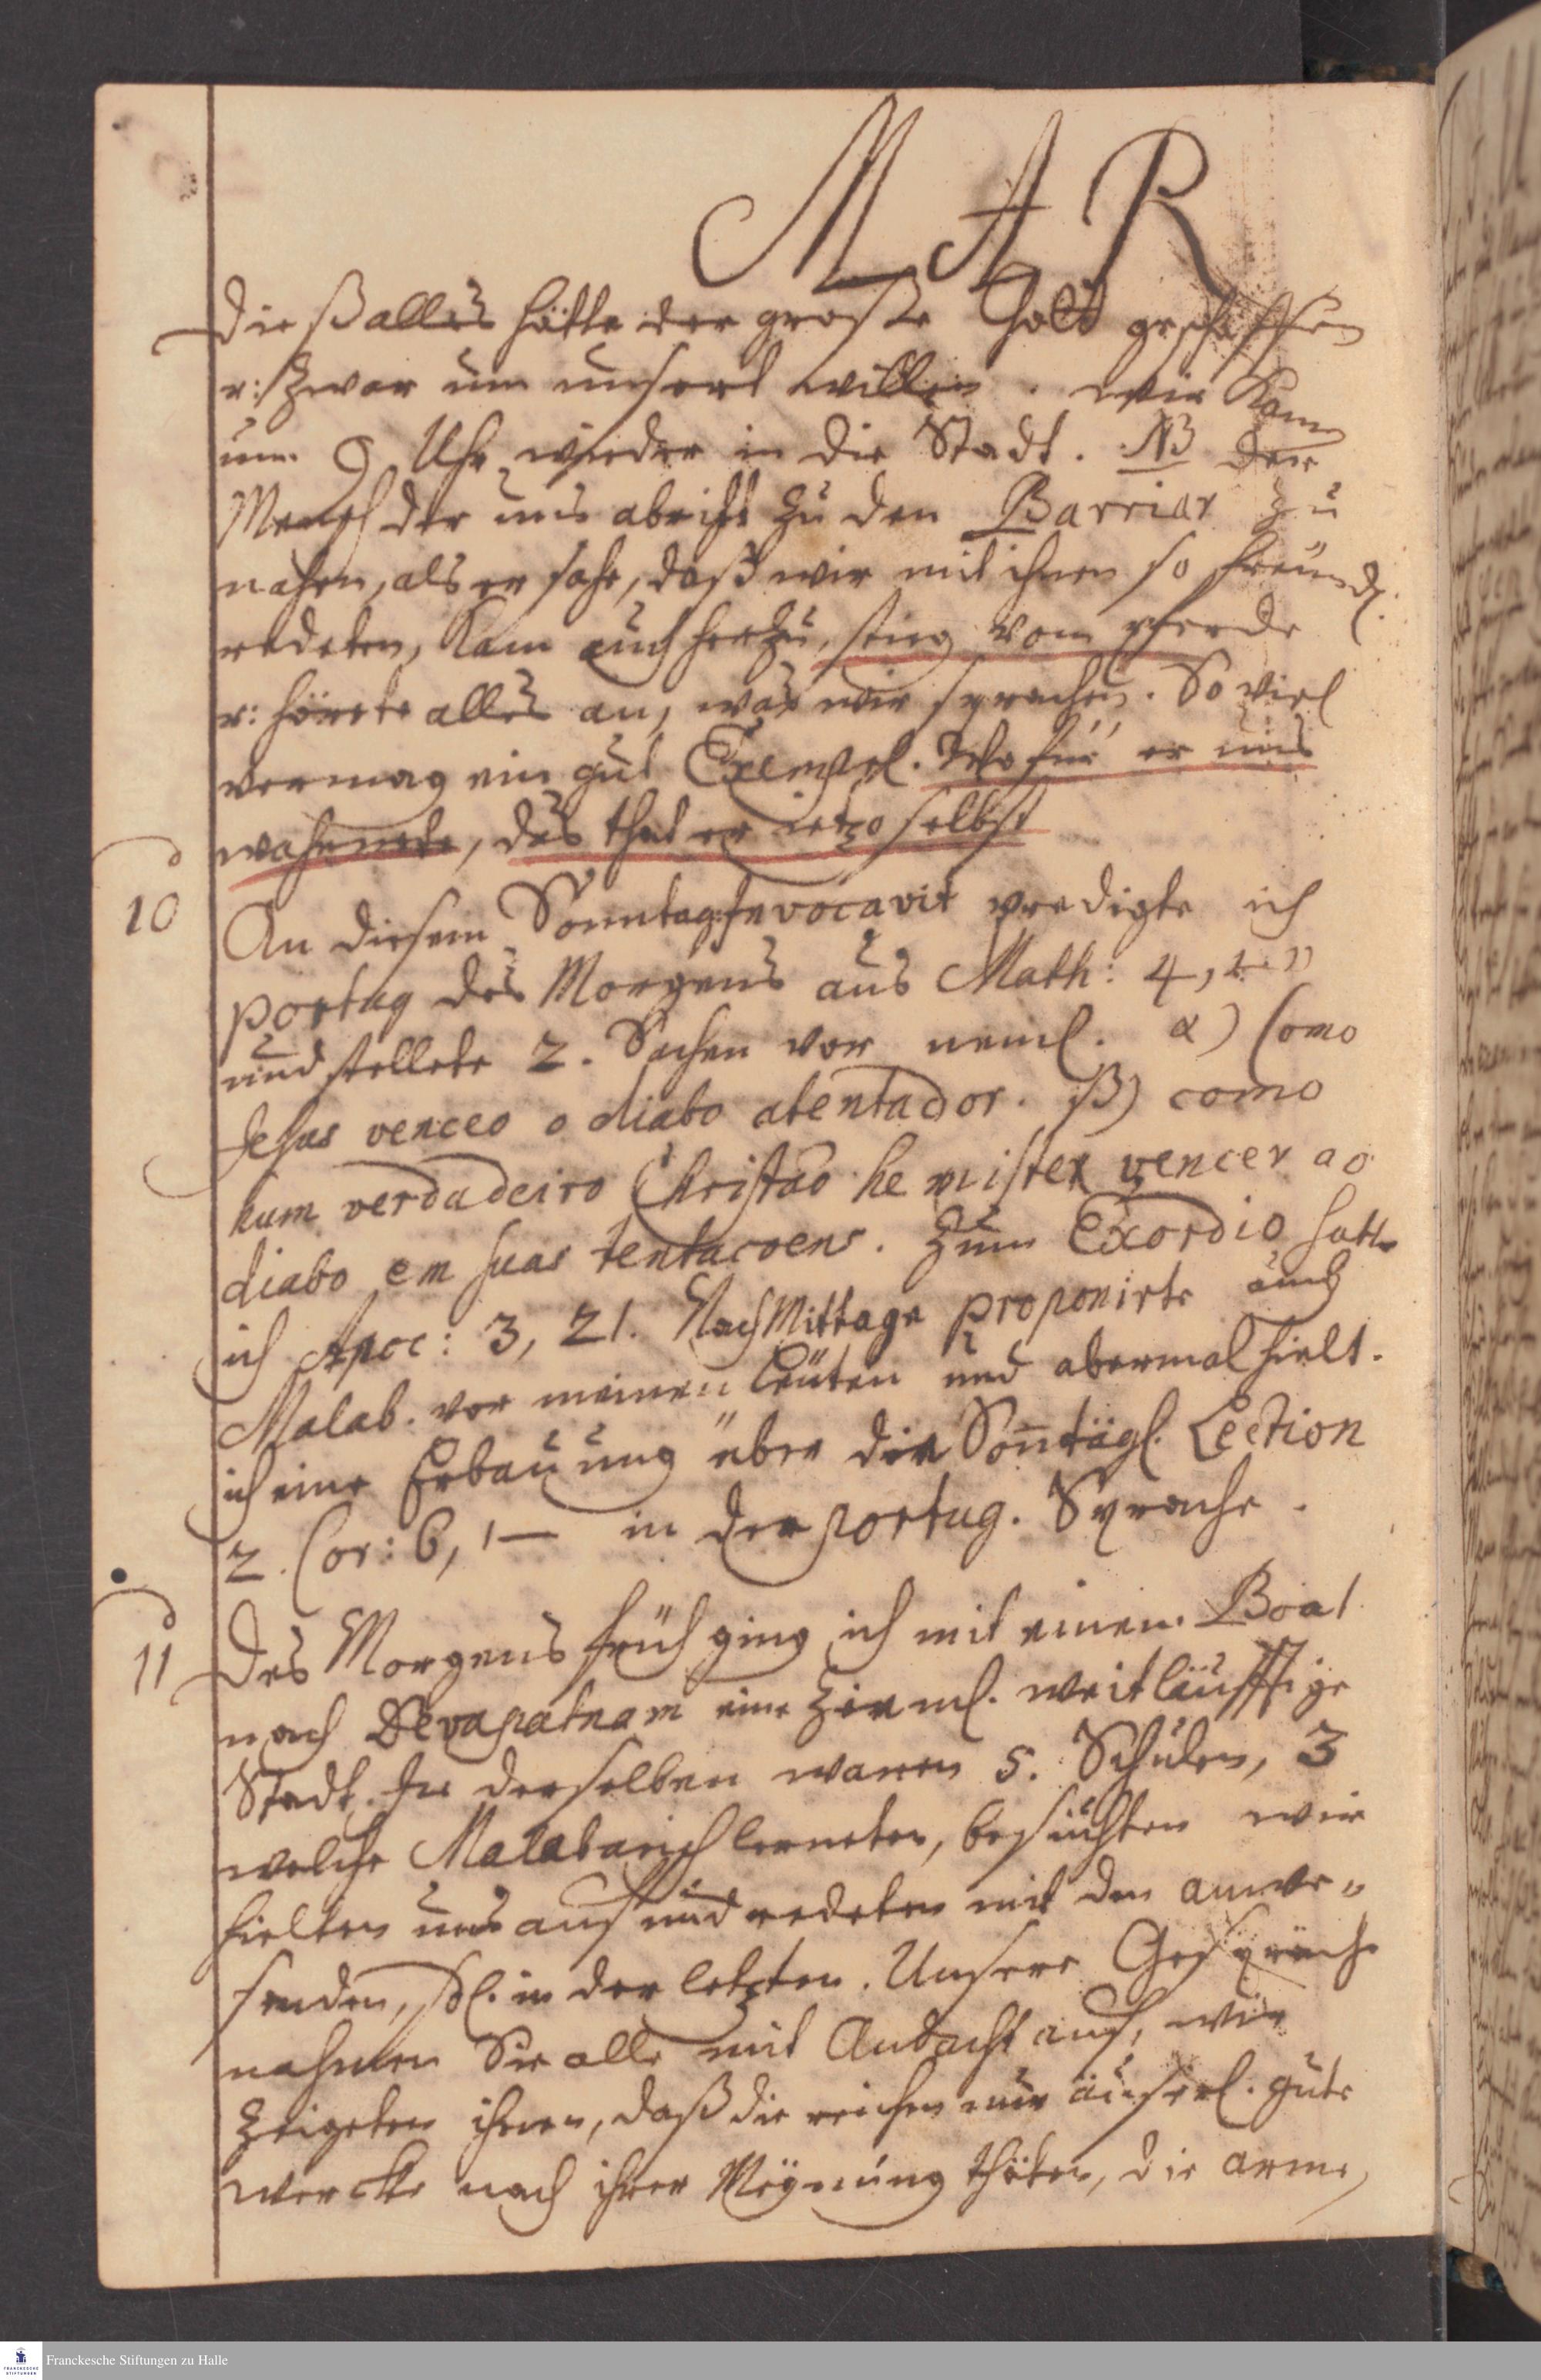 MAR
dieß alles hätte der große Gott geschaffen
u: zwar um unsert willen. wir kamen
um 9 Uhr wieder in die Stadt. NB der
Mensch der uns abrieht zu den Barriar zu
nahen, als er sahe, daß wir mit ihnen so freundl.
redeten, kam auch herzu, stieg vom pferde
u: hörete alles an, was wir sprachen. So viel
vermag ein gut Exempel. Wofür er uns
wahrnete, das that er ietzo selbst
10
An diesem Sonntag Invocavit predigte ich
portug des Morgens aus Math: 4, 1-11
und stellete 2. Sachen vor neml. α) como
Jesus venceo o diabo atentador. β) como
hum verdadeiro Christaõ he mister vencer ao
diabo em suas tentacoens. Zum Exordio hatte
ich Apoc: 3, 21. NachMittage proponirte auch
Malab. vor meinen Leüten und abermal hielt.
ich eine Erbauung über die Soñtägl. Lection
2. Cor: 6, 1— in der portug. Sprache.
11
Des Morgens früh ging ich mit einem Boat
nach Devapatnam eine zieml. weitläufftige
Stadt. In derselben waren 5. Schulen, 3
welche Malabarisch lerneten, besuchten wir
hielten uns auf und redeten mit den anwe-
senden, sdl. in der letzten. Unsere Gespräche
nahmen Sie alle mit Andacht auf, wir
zeigeten ihnen, daß die reichen nur äuserl. gute
wercke nach ihrer Meynung thäten, die arme,
Franckesche Stiftungen zu Halle